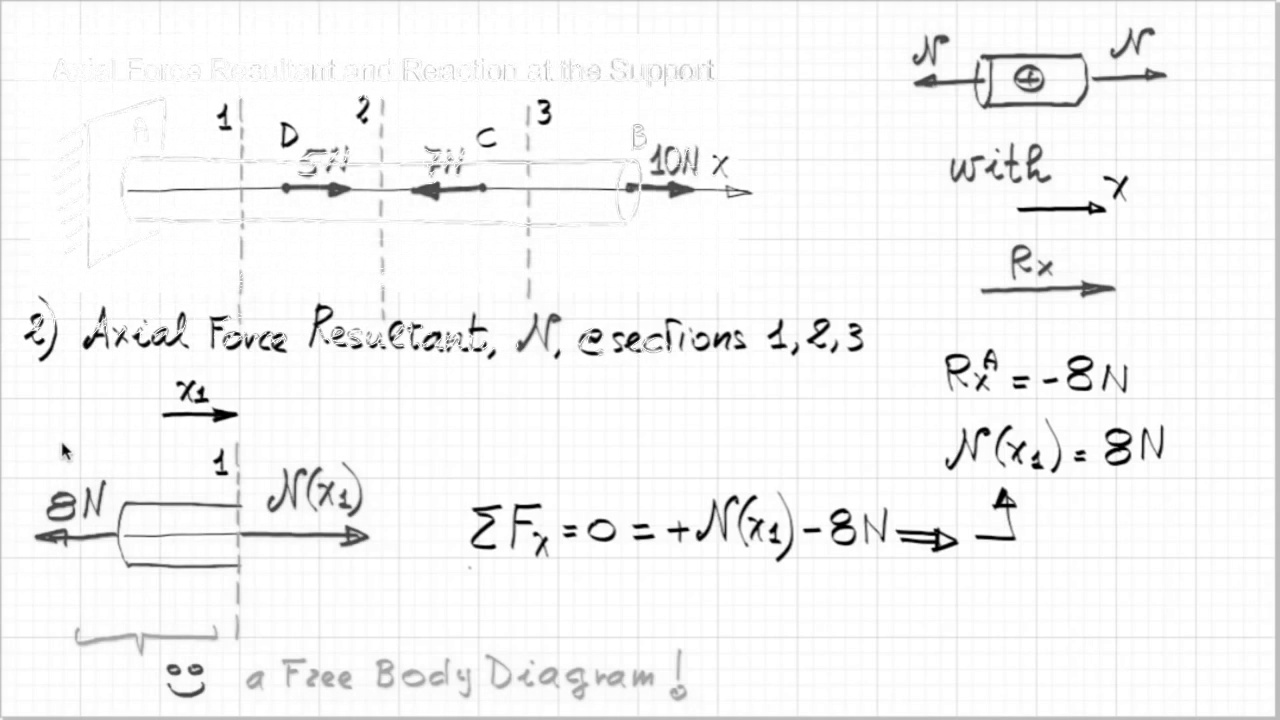 Axial Force Resultant and Reaction at the Support
N N
+
A 1 D 5N 2 7N C 3 B 10N x
with
x
Rx
2) Axial Force Resultant, N, @ sections 1, 2, 3
RxA = -8N
x1
N(x1) = 8N
8N 1 N(x1)
ΣFx = 0 = +N(x1) - 8N ⇒
a Free Body Diagram!